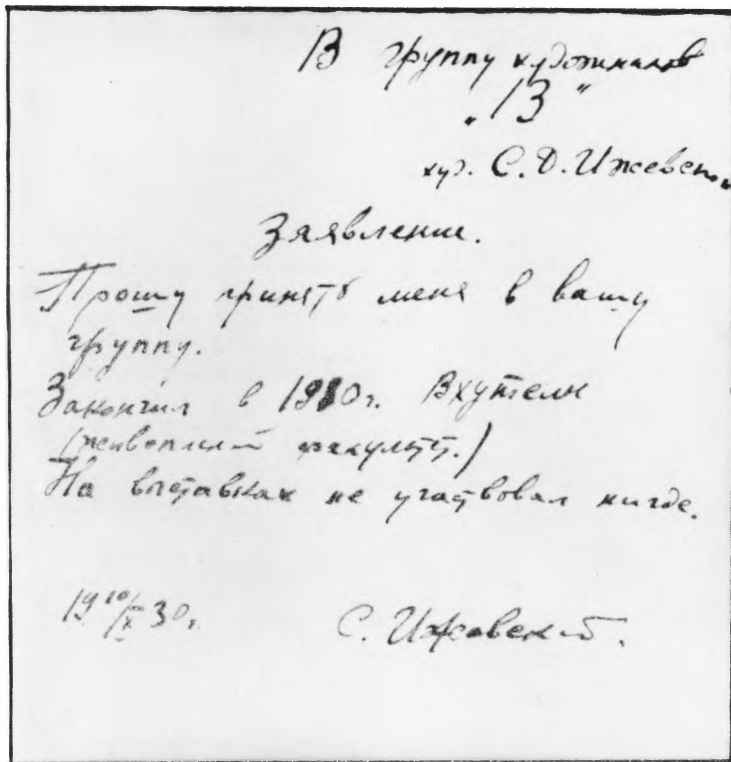 В группу художников
„13“
худ. С. Д. Ижевского
Заявление.
Прошу принять меня в вашу
группу.
Закончил в 1930г. Вхутеин
(живописный факульт.)
На выставках не участвовал нигде.
19 10/X 30г.
С. Ижевский.